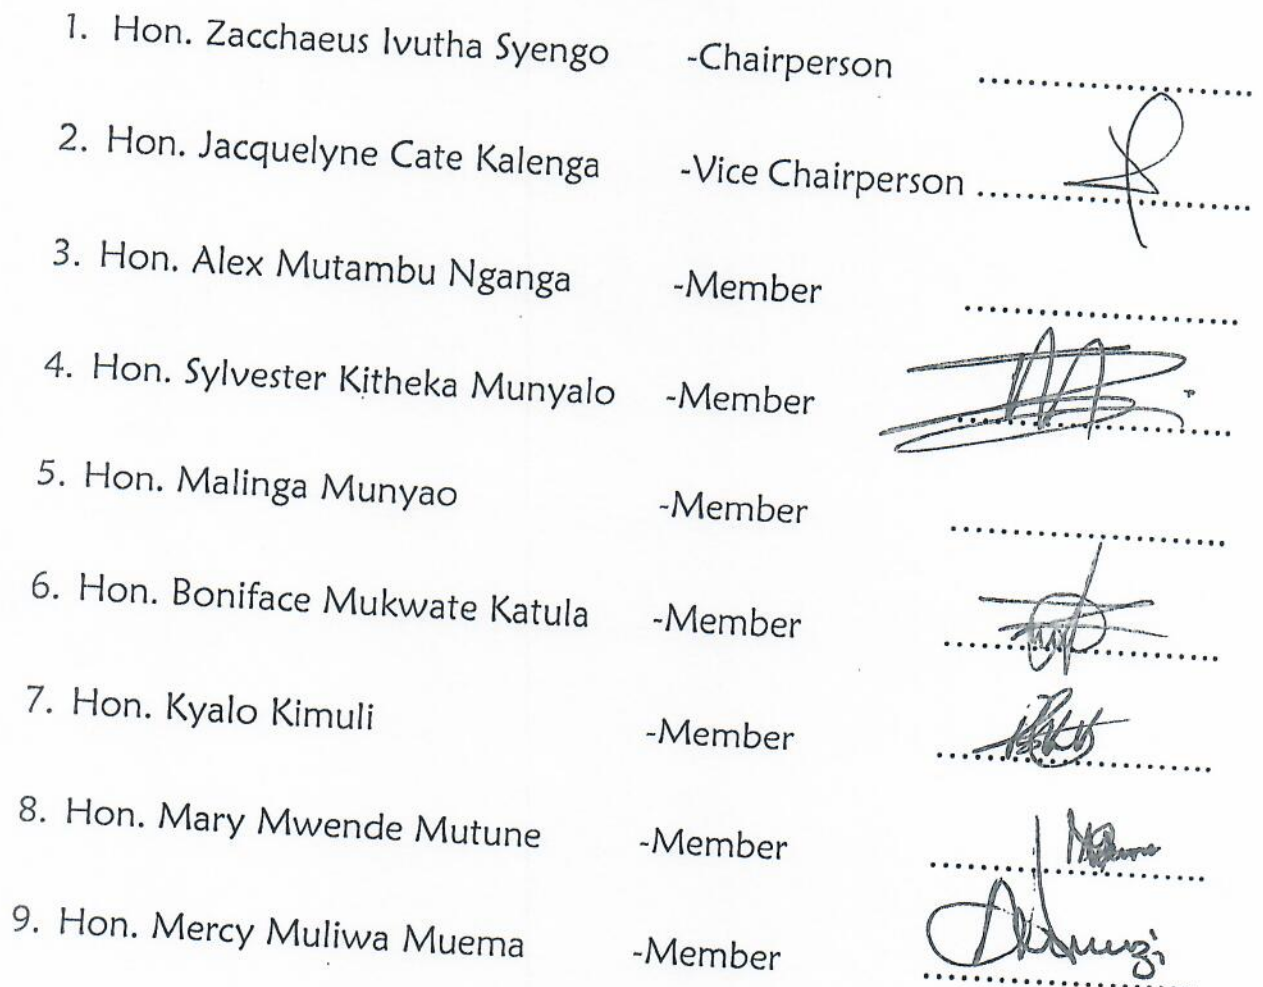 1. Hon. Zacchaeus Ivutha Syengo -Chairperson ........................
2. Hon. Jacquelyne Cate Kalenga -Vice Chairperson ........................
3. Hon. Alex Mutambu Nganga -Member ........................
4. Hon. Sylvester Kitheka Munyalo -Member ........................
5. Hon. Malinga Munyao -Member ........................
6. Hon. Boniface Mukwate Katula -Member ........................
7. Hon. Kyalo Kimuli -Member ........................
8. Hon. Mary Mwende Mutune -Member ........................
9. Hon. Mercy Muliwa Muema -Member ........................